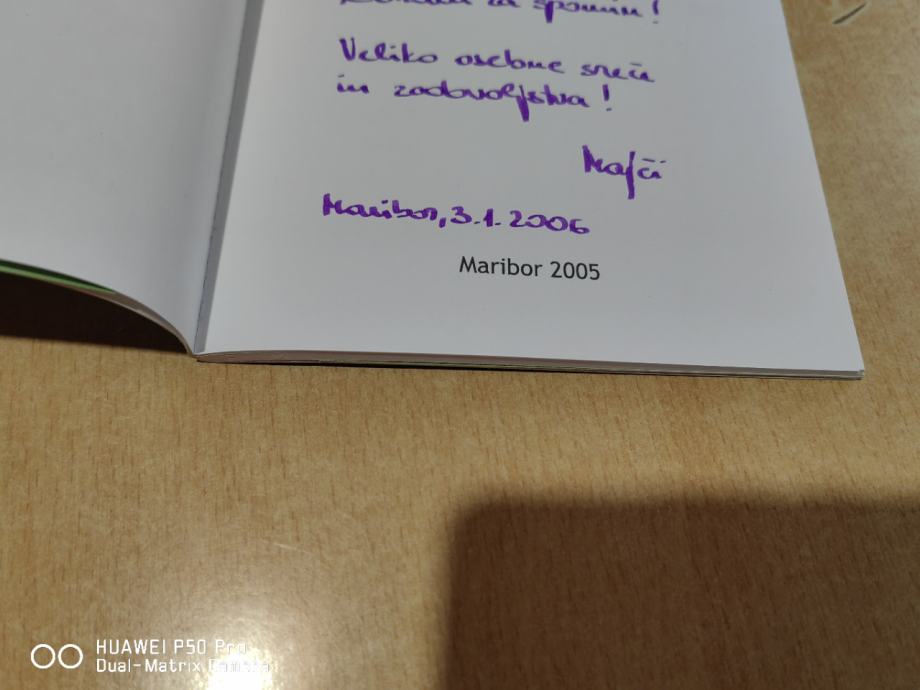 za spomin!
Veliko osebne sreče
in zadovoljstva!
Majči
Maribor, 3.1.2006
Maribor 2005
HUAWEI P50 Pro
Dual-Matrix Camera